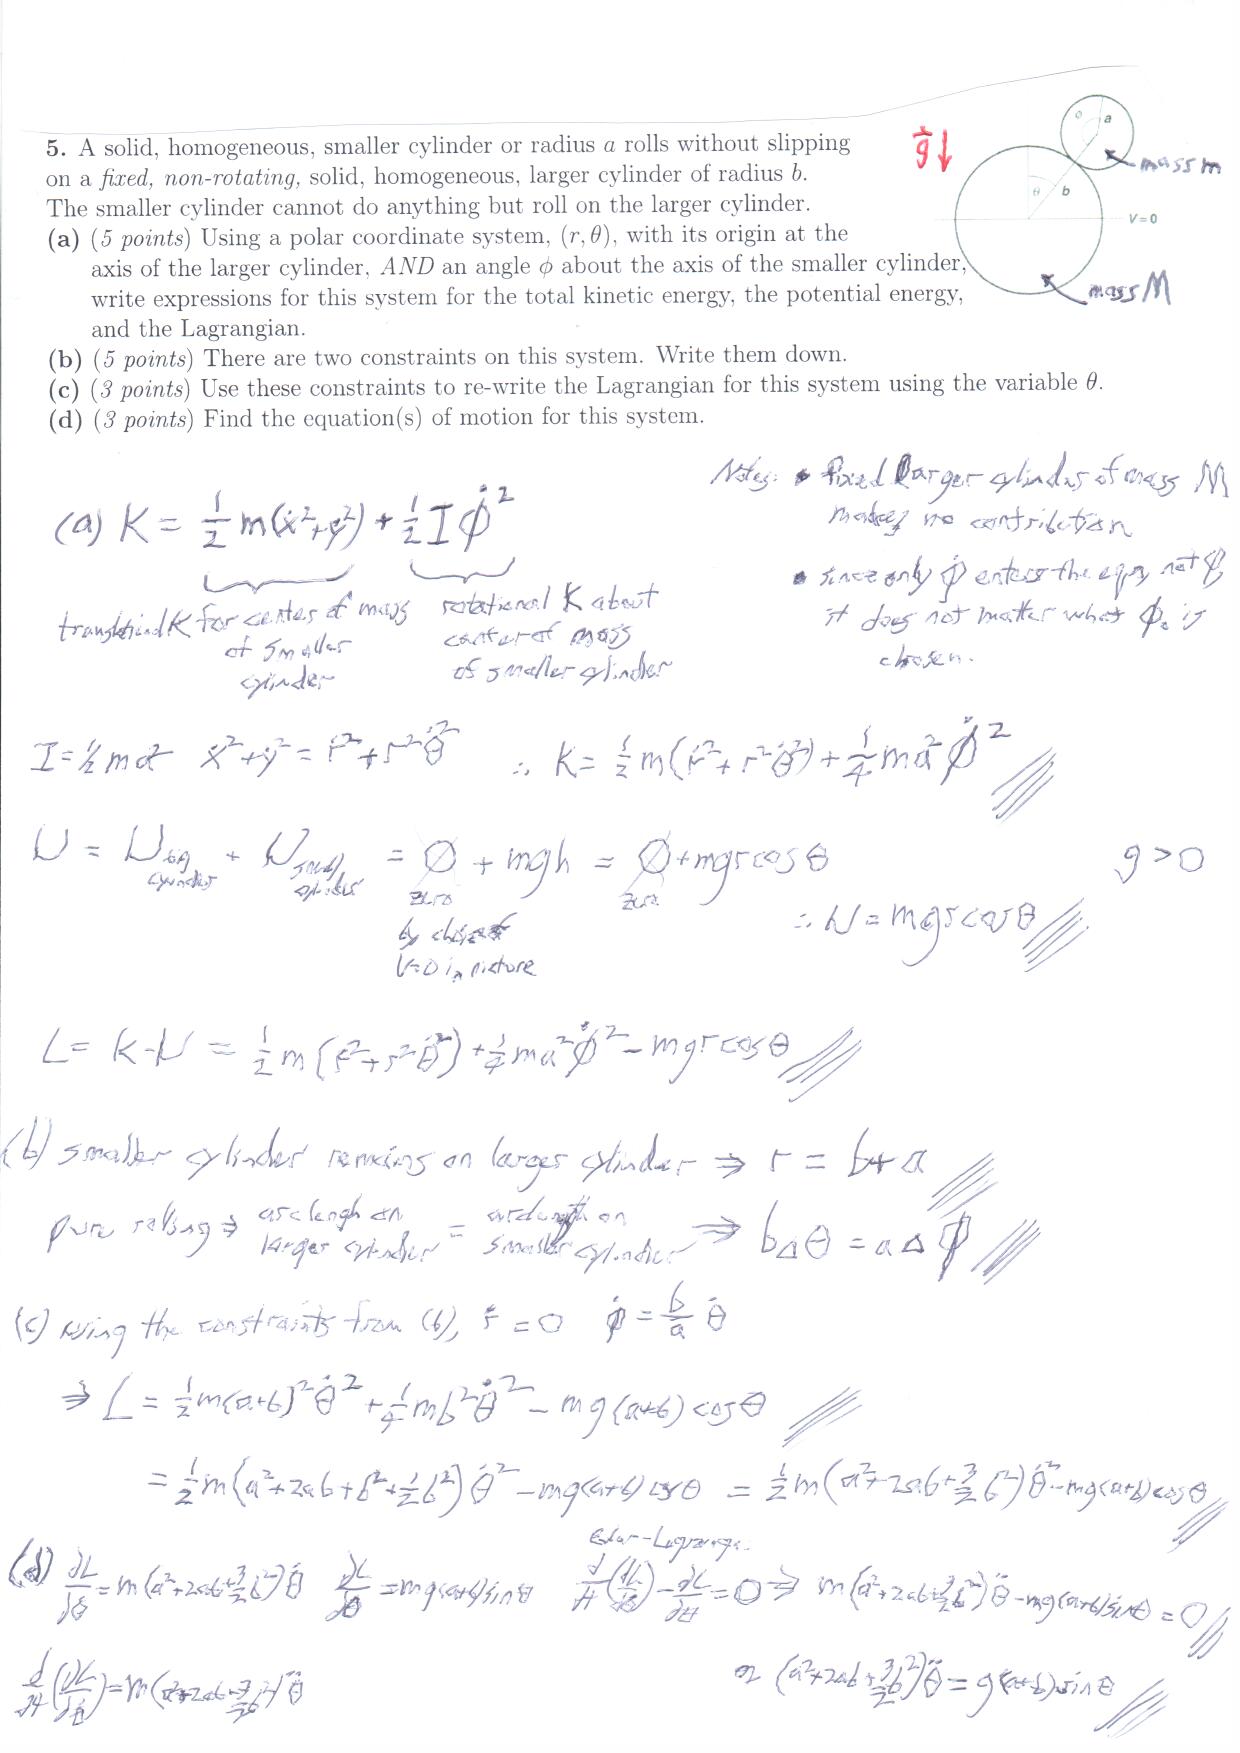 5. A solid, homogeneous, smaller cylinder or radius a rolls without slipping
on a fixed, non-rotating, solid, homogeneous, larger cylinder of radius b.
The smaller cylinder cannot do anything but roll on the larger cylinder.
(a) (5 points) Using a polar coordinate system, (r, θ), with its origin at the
axis of the larger cylinder, AND an angle ϕ about the axis of the smaller cylinder,
write expressions for this system for the total kinetic energy, the potential energy,
and the Lagrangian.
(b) (5 points) There are two constraints on this system. Write them down.
(c) (3 points) Use these constraints to re-write the Lagrangian for this system using the variable θ.
(d) (3 points) Find the equation(s) of motion for this system.
g ↓
φ a
mass m
θ b
V=0
mass M
Notes: • fixed larger cylinder of mass M
makes no contribution
• since only φ̇ enters the eqn, not φ,
it does not matter what φ₀ is
chosen.
(a) K = ½ m(ẋ²+ẏ²) + ½ I φ̇²
translational K for center of mass
of smaller
cylinder
rotational K about
center of mass
of smaller cylinder
I = ½ ma² ẋ²+ẏ² = ṙ²+r²θ̇² ∴ K = ½ m(ṙ²+r²θ̇²) + ¼ ma²φ̇²
U = U big cylinder + U small cylinder = 0 + mgh = 0 + mgr cosθ g > 0
zero zero
by choice of
V=0 in picture
∴ U = mgr cosθ
L = K-U = ½ m(ṙ²+r²θ̇²) + ¼ ma²φ̇² - mgr cosθ
(b) smaller cylinder remains on larger cylinder ⇒ r = b+a
pure rolling ⇒ arc length on larger cylinder = arc length on smaller cylinder ⇒ bΔθ = aΔφ
(c) using the constraints from (b), ṙ = 0 φ̇ = b/a θ̇
⇒ L = ½ m(a+b)²θ̇² + ¼ mb²θ̇² - mg(a+b) cosθ
= ½ m(a²+2ab+b²+½b²)θ̇² - mg(a+b) cosθ = ½ m(a²+2ab+3/2 b²)θ̇² - mg(a+b) cosθ
Euler-Lagrange
(d) ∂L/∂θ̇ = m(a²+2ab+3/2 b²)θ̇ ∂L/∂θ = mg(a+b) sinθ d/dt(∂L/∂θ̇) - ∂L/∂θ = 0 ⇒ m(a²+2ab+3/2 b²)θ̈ - mg(a+b) sinθ = 0
d/dt(∂L/∂θ̇) = m(a²+2ab+3/2 b²)θ̈
(a²+2ab+3/2 b²)θ̈ = g(a+b) sinθ